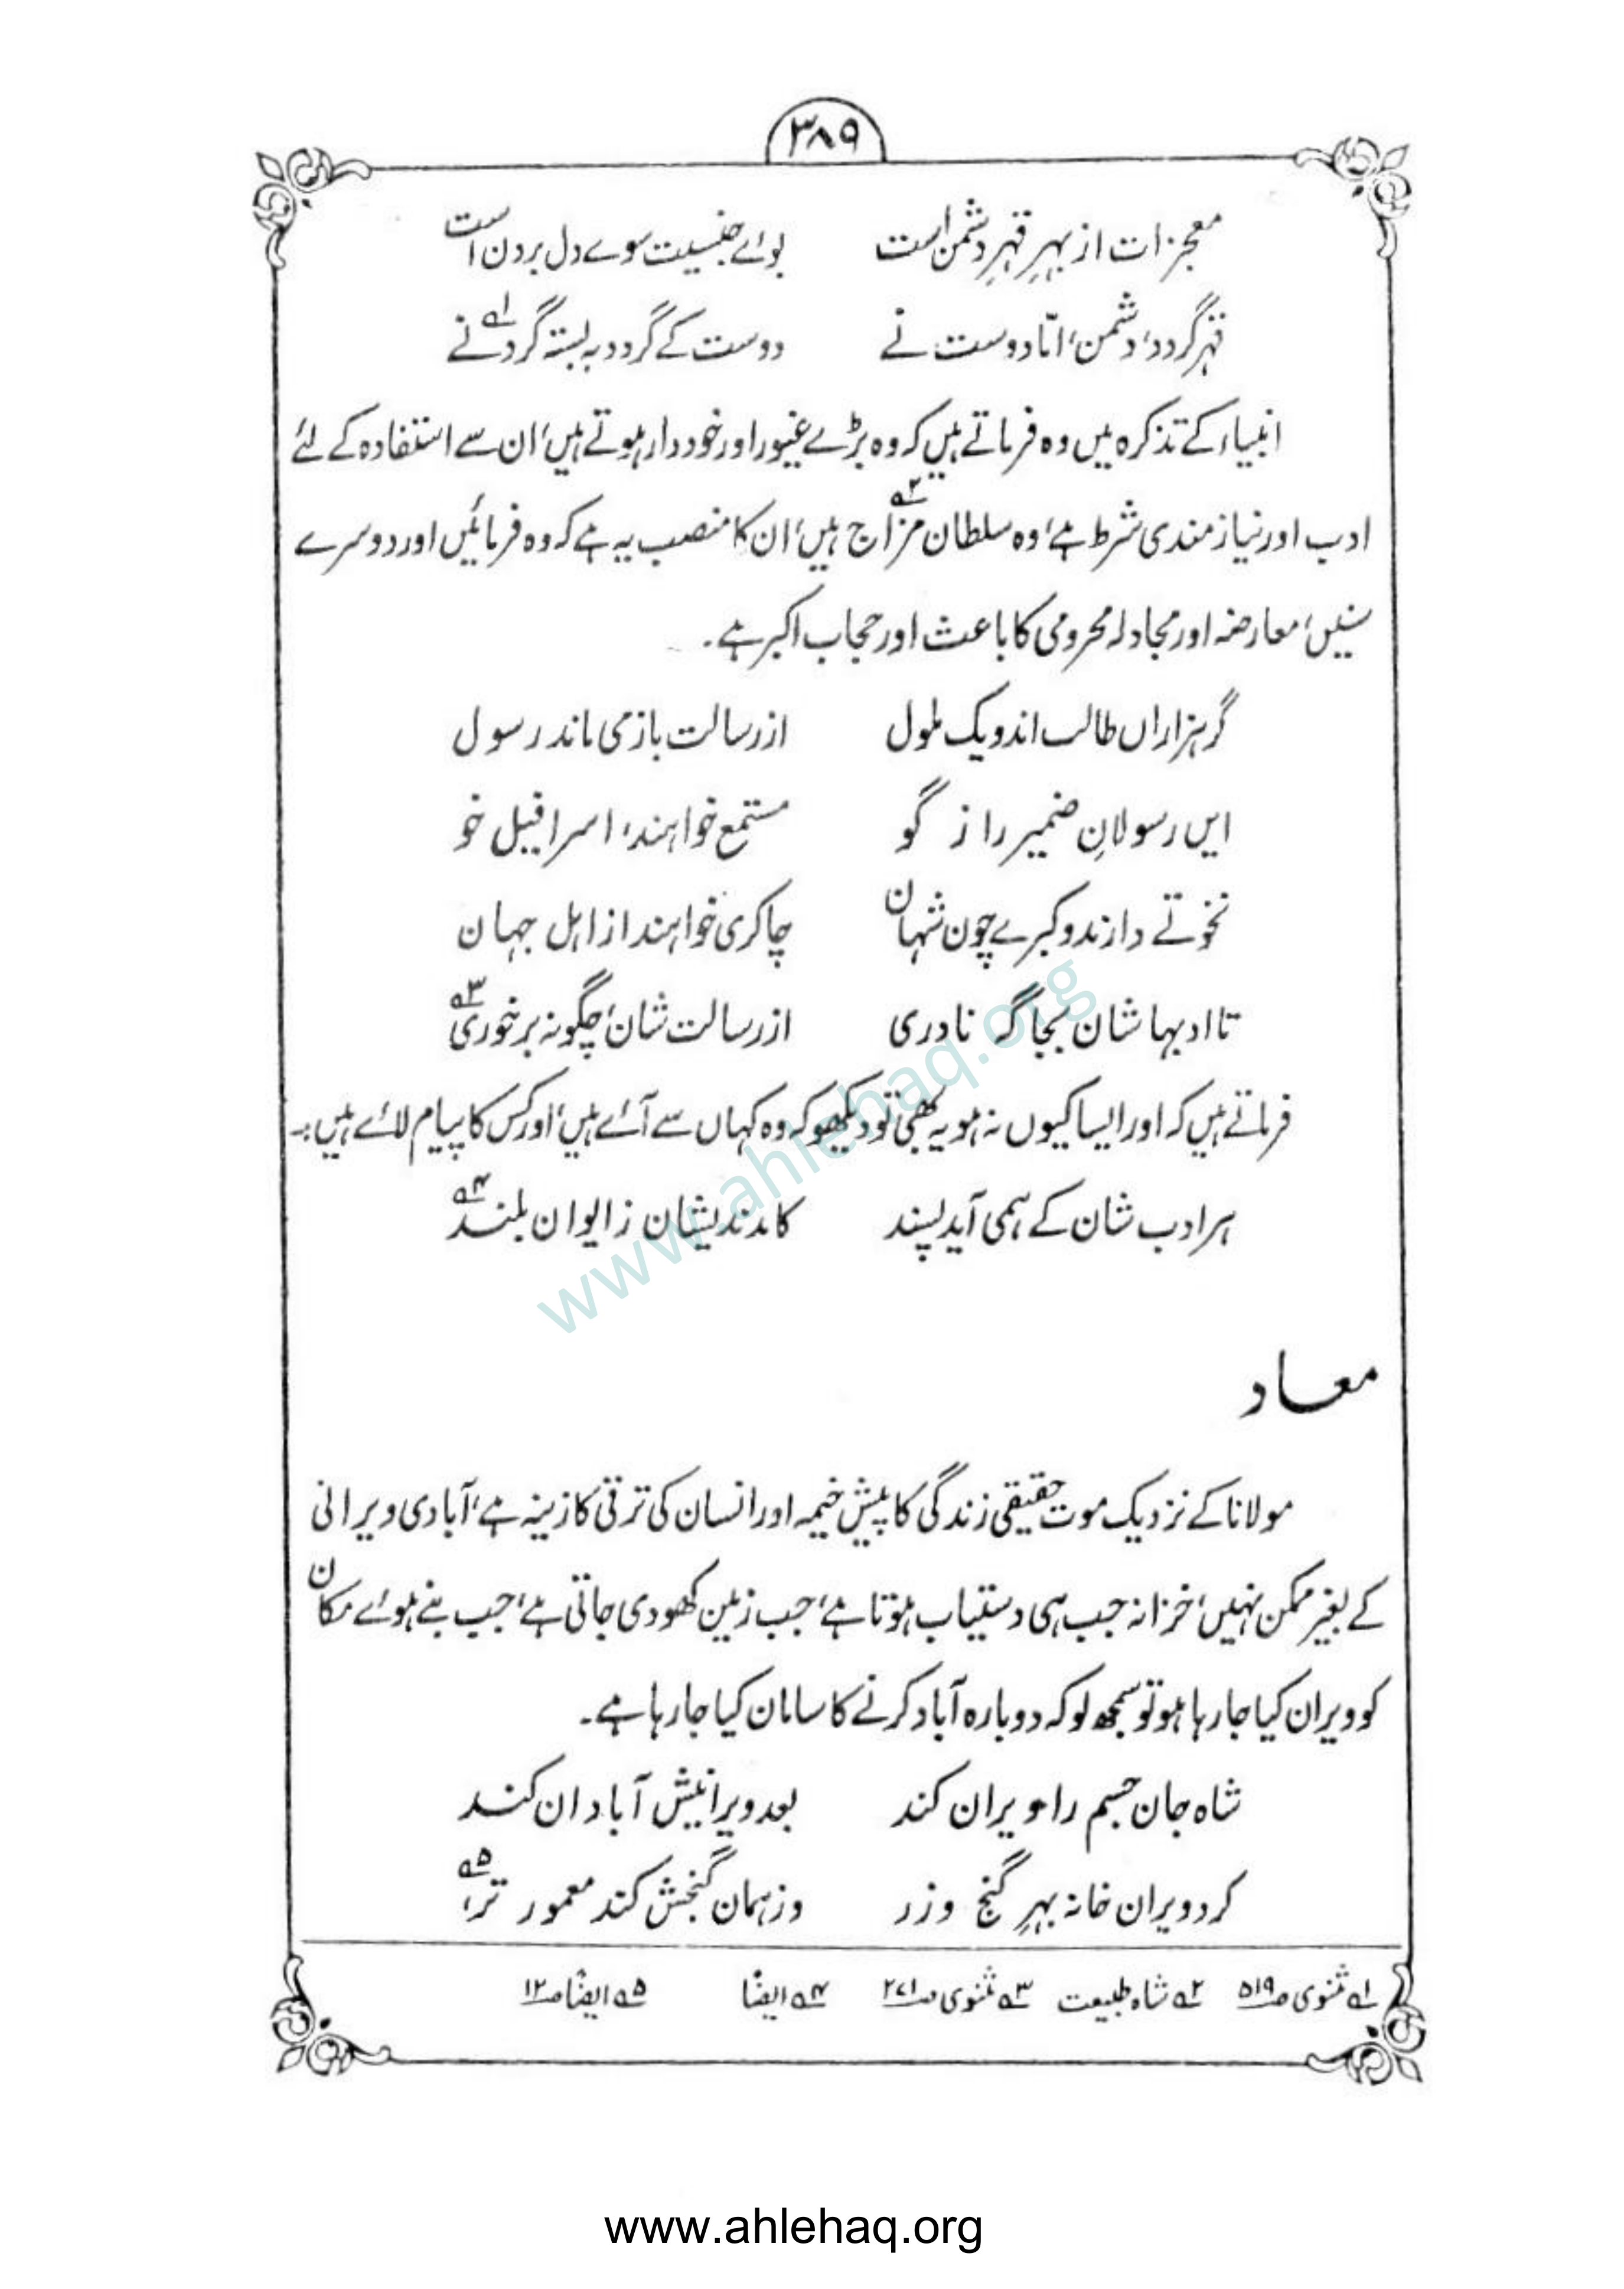 ۳۸۹
معجزات از بہرِ قہرِ دشمن است    بوائے جنسیت سوے دل بردن است
قہر گردد، دشمن، امّا دوست نے    دوست کے گردد بہ بستہ گردنے ۱؎
انبیاء کے تذکرہ میں وہ فرماتے ہیں کہ وہ بڑے غیور اور خوددار ہوتے ہیں، ان سے استفادہ کے لئے
ادب اور نیازمندی شرط ہے، وہ سلطان مزاج ۲؎ ہیں، ان کا منصب یہ ہے کہ وہ فرمائیں اور دوسرے
سنیں، معارضہ اور مجادلہ محرومی کا باعث اور حجاب اکبر ہے۔
گر ہزاراں طالب اند و یک ملول    از رسالت باز می ماند رسول
ایں رسولانِ ضمیر راز گو    مستمع خواہند، اسرافیل خو
نخوتے دارند و کبرے چون شہان    چاکری خواہند از اہل جہان
تا ادبہا شان بجاگہ نادری    از رسالت شان، چگونہ برخوری ۳؎
فرماتے ہیں کہ اور ایسا کیوں نہ ہو یہ بھی تو دیکھو کہ وہ کہاں سے آئے ہیں، اور کس کا پیام لائے ہیں:۔
ہر ادب شان کے ہمی آید پسند    کامدند یشان ز ایوان بلند ۴؎
معاد
مولانا کے نزدیک موت حقیقی زندگی کا پیش خیمہ اور انسان کی ترقی کا زینہ ہے، آبادی ویرانی
کے بغیر ممکن نہیں، خزانہ جب ہی دستیاب ہوتا ہے، جب زمین کھودی جاتی ہے، جب بنے ہوئے مکان
کو ویران کیا جا رہا ہو تو سمجھ لو کہ دوبارہ آباد کرنے کا سامان کیا جا رہا ہے۔
شاہ جان جسم را ویران کند    بعد ویرانیش آبادان کند
کرد ویران خانہ بہرِ گنج و زر    وز ہمان گنجش کند معمور تر، ۵؎
۱؎ مثنوی ص۵۱۹    ۲؎ شاہ طبیعت    ۳؎ مثنوی ص۲۷۱    ۴؎ ایضاً    ۵؎ ایضاً ص۱۲
www.ahlehaq.org
www.ahlehaq.org